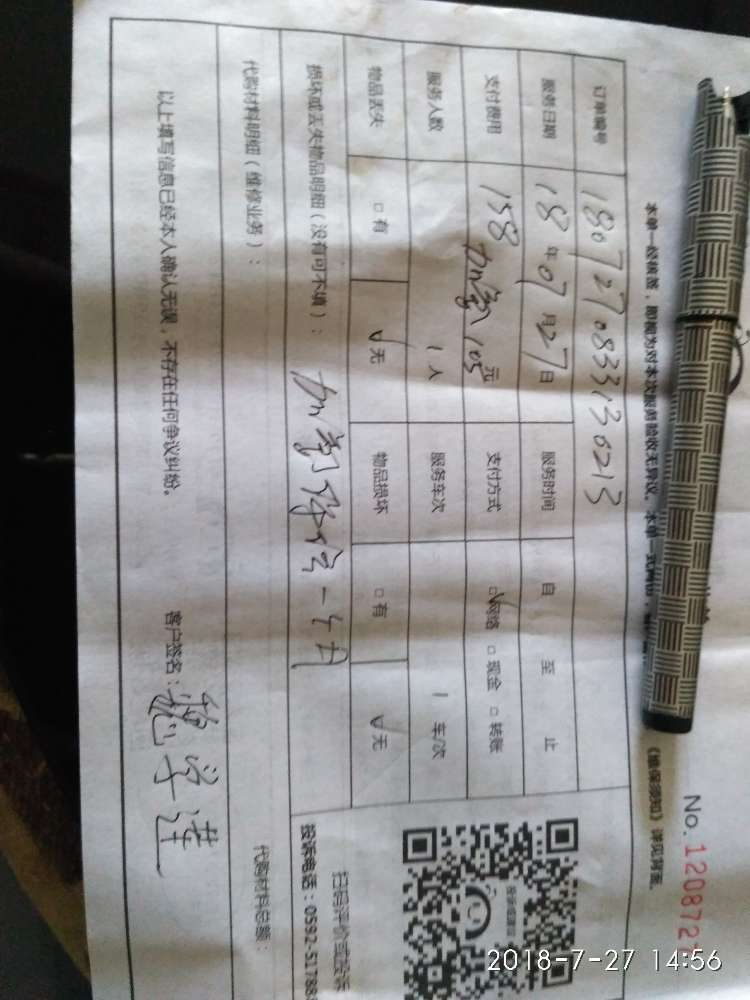 No.120872
本单一经核签，即视为对本次服务验收无异议。本单一式两份，
《维保须知》详见背面。
订单编号 1807270833130213
服务日期 18年07月27日 服务时间 自 至 止
支付费用 158 加氟105元 支付方式 □网络 □现金 □转账
服务人数 1人 服务车次 1车/次
物品丢失 □有 □无 物品损坏 □有 □无
损坏或丢失物品明细（没有可不填）：加氟
代购材料明细（维修业务）： 代购材料总额：
以上填写信息已经本人确认无误，不存在任何争议纠纷。 客户签名：
投诉或建议
扫码评价或投诉
投诉电话：0592-51788
2018-7-27 14:56